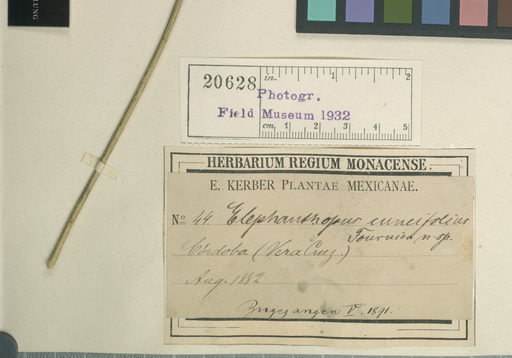 LUNG
20628
in. 1 2
Photogr.
Field Museum 1932
cm. 1 2 3 4 5
HERBARIUM REGIUM MONACENSE.
E. KERBER PLANTAE MEXICANAE.
No. 44. Elephanthopus cuneifolius
Fournier, n. sp.
Córdoba (Vera Cruz.)
Aug. 1882
Zugegangen V. 1891.